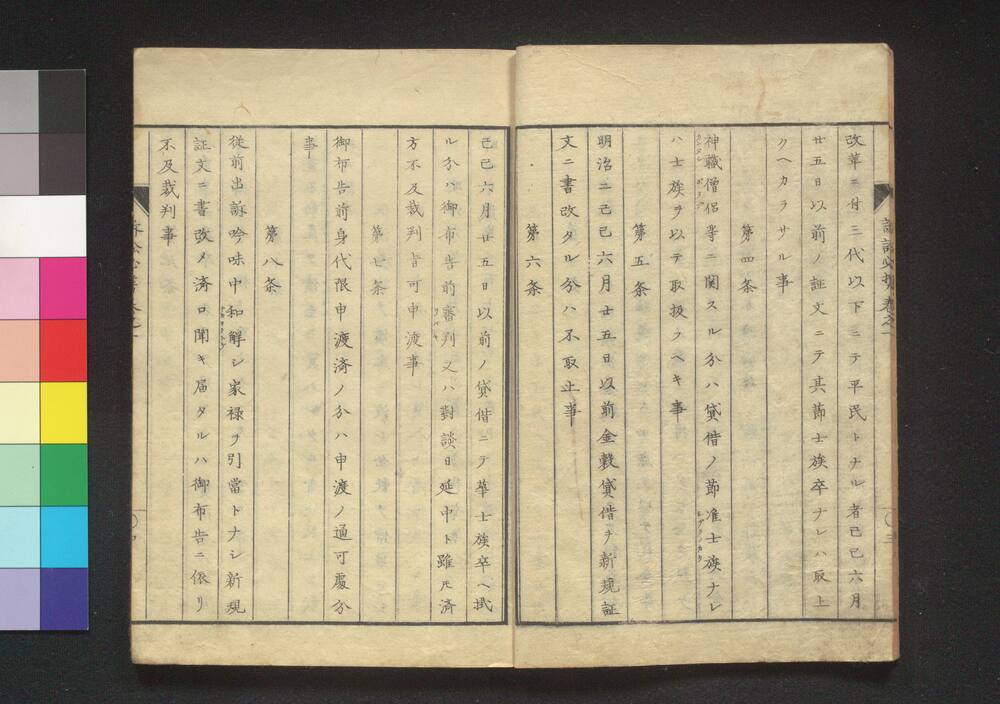 改革ニ付三代以下ニテ平民トナル者己巳六月
廿五日以前ノ証文ニテ其節士族卒ナレハ取上
クヘカラサル事
第四条
神職僧侶等ニ関スル分ハ貸借ノ節准士族ナレ
ハ士族ヲ以テ取扱フヘキ事
第五条
明治二己巳六月廿五日以前金穀貸借ヲ新規証
文ニ書改タル分ハ不取上事
第六条
己巳六月廿五日以前ノ貸借ニテ華士族卒ヘ掛
ル分ハ御布告前審判又ハ對談日延中ト雖モ済
方不及裁判旨可申渡事
第七条
御布告前身代限申渡済ノ分ハ申渡ノ通可處分
事
第八条
従前出訴吟味中和解シ家禄ヲ引當トナシ新規
証文ニ書改メ済口聞キ届タルハ御布告ニ依リ
不及裁判事